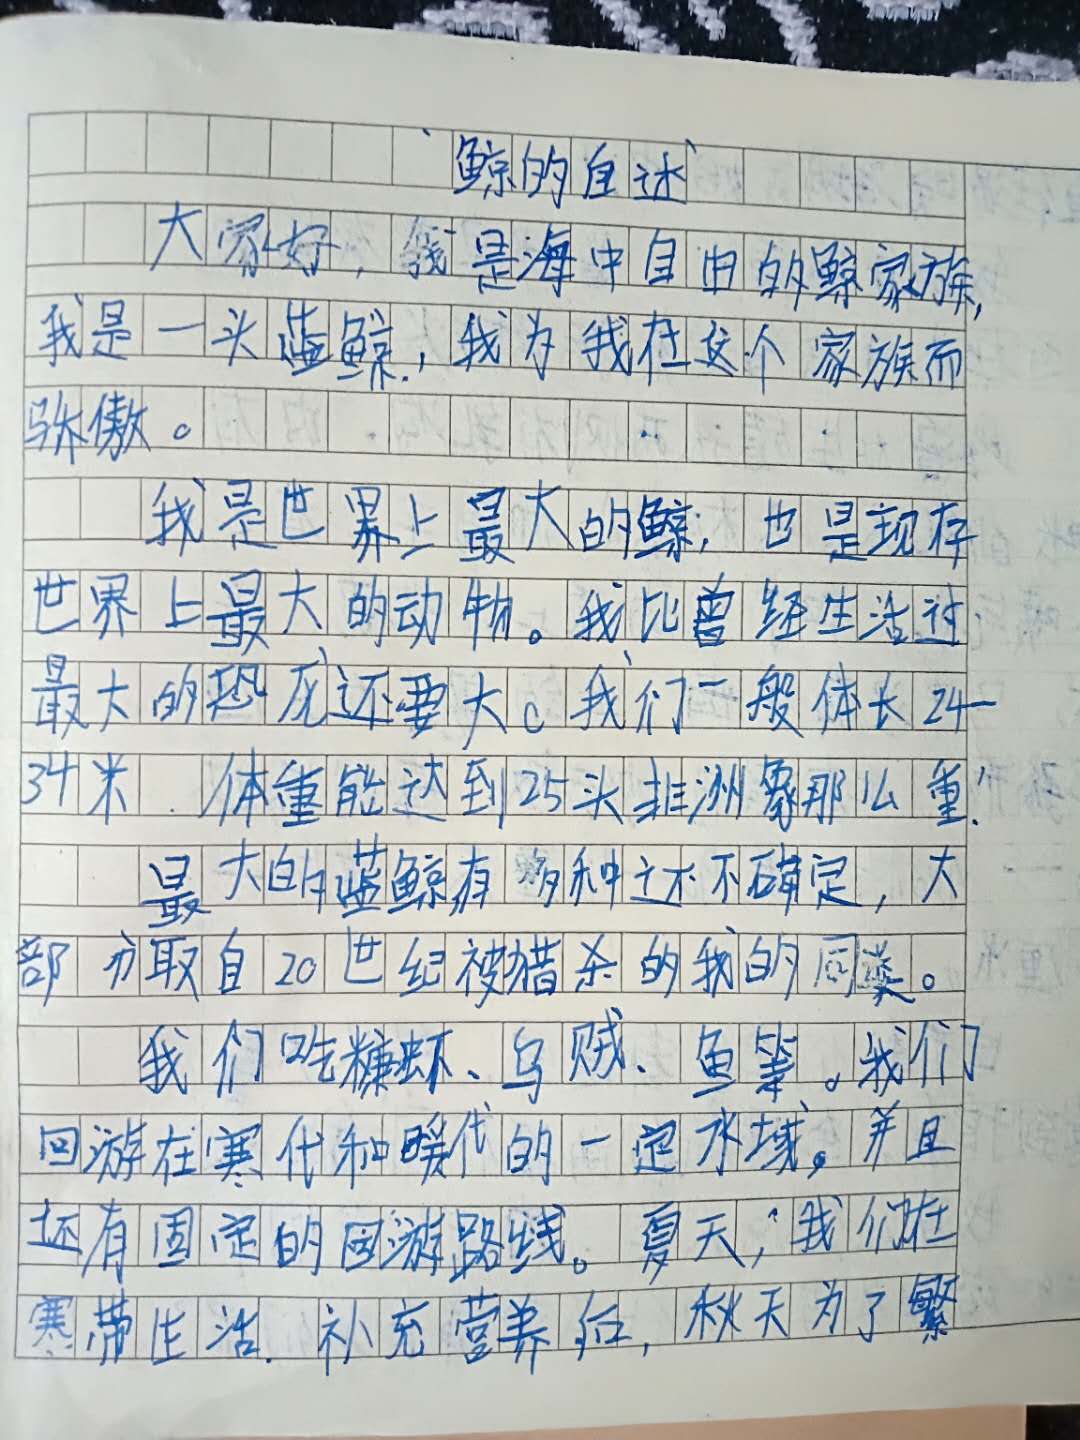 鲸的自述
大家好，我是海中自由的鲸家族，
我是一头蓝鲸，我为我在这个家族而
骄傲。
我是世界上最大的鲸，也是现存
世界上最大的动物。我比曾经生活过
最大的恐龙还要大。我们一般体长24—
34米．体重能达到25头非洲象那么重！
最大的蓝鲸有多种还不确定，大
部分取自20世纪被猎杀的我的同类。
我们吃糠虾、乌贼、鱼等。我们
回游在寒代和暖代的一定水域。并且
还有固定的回游路线。夏天，我们在
寒带生活．补充营养后，秋天为了繁